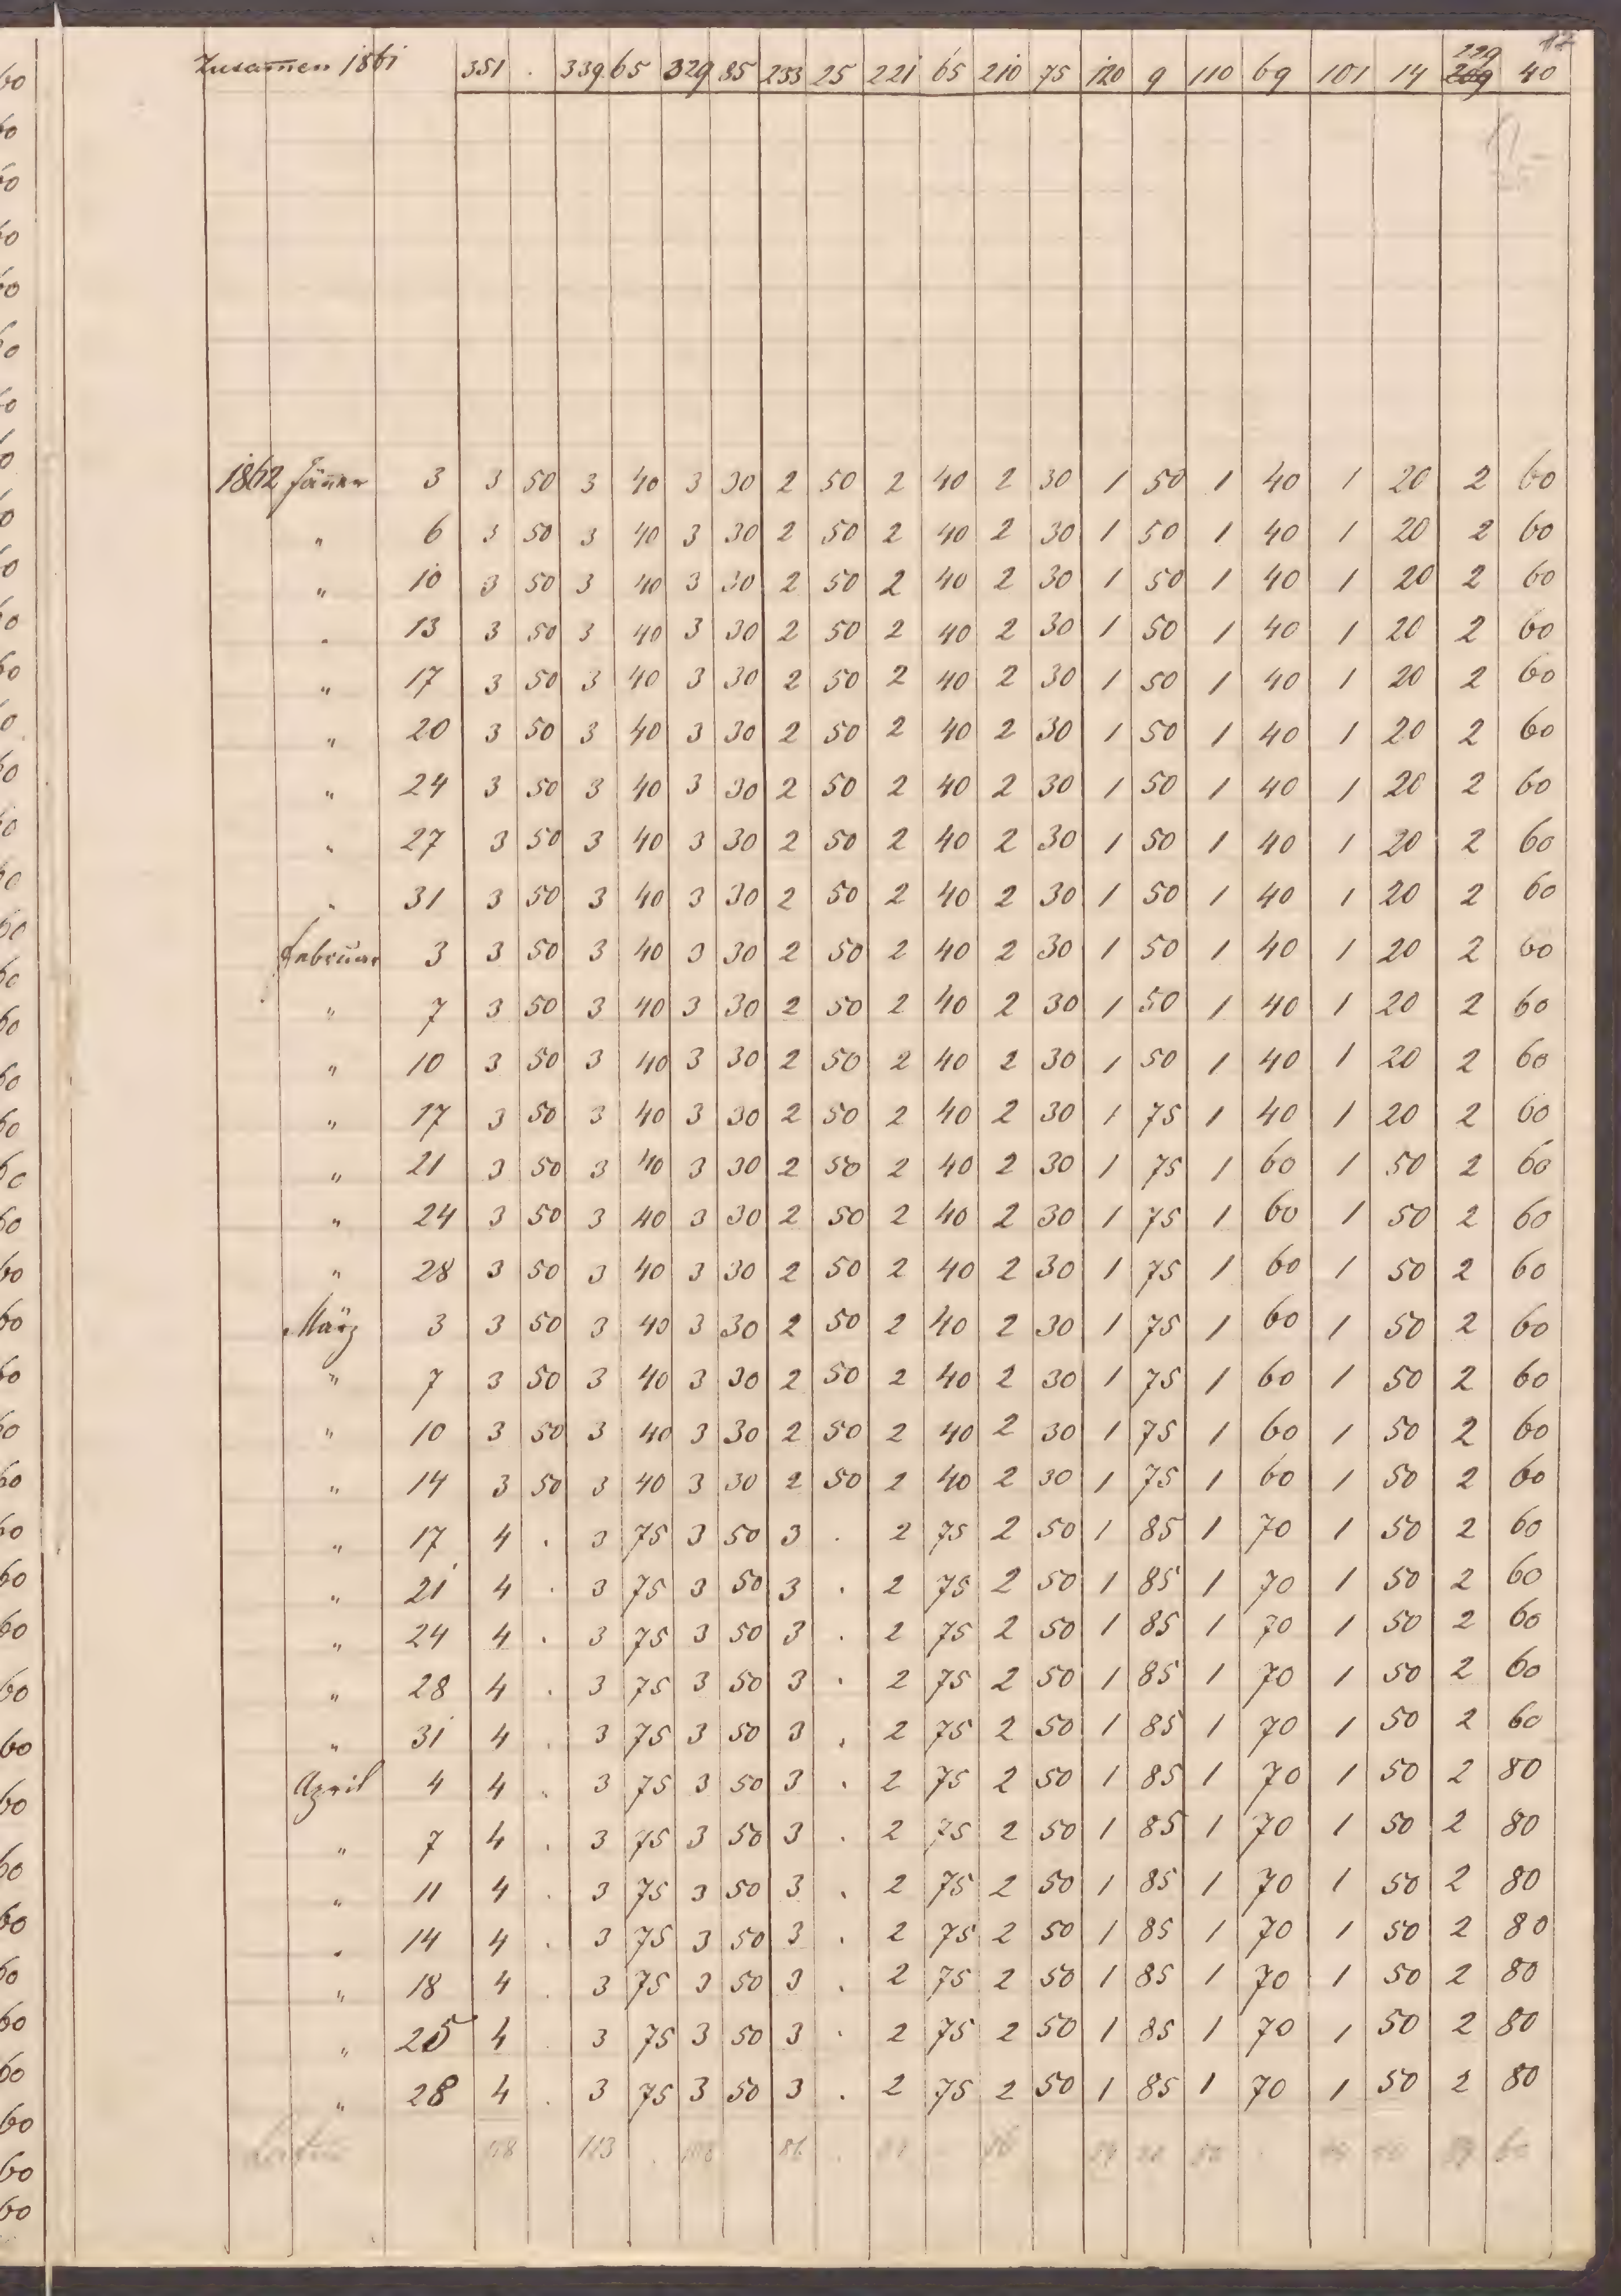 17
Zusam̄en 1861 351 . 339 65 329 85 233 25 221 65 210 75 120 9 110 69 101 14 229 40
1862 Jän̄er 3 3 50 3 40 3 30 2 50 2 40 2 30 1 50 1 40 1 20 2 60
" 6 3 50 3 40 3 30 2 50 2 40 2 30 1 50 1 40 1 20 2 60
" 10 3 50 3 40 3 30 2 50 2 40 2 30 1 50 1 40 1 20 2 60
" 13 3 50 3 40 3 30 2 50 2 40 2 30 1 50 1 40 1 20 2 60
" 17 3 50 3 40 3 30 2 50 2 40 2 30 1 50 1 40 1 20 2 60
" 20 3 50 3 40 3 30 2 50 2 40 2 30 1 50 1 40 1 20 2 60
" 24 3 50 3 40 3 30 2 50 2 40 2 30 1 50 1 40 1 20 2 60
" 27 3 50 3 40 3 30 2 50 2 40 2 30 1 50 1 40 1 20 2 60
" 31 3 50 3 40 3 30 2 50 2 40 2 30 1 50 1 40 1 20 2 60
Februar 3 3 50 3 40 3 30 2 50 2 40 2 30 1 50 1 40 1 20 2 60
" 7 3 50 3 40 3 30 2 50 2 40 2 30 1 50 1 40 1 20 2 60
" 10 3 50 3 40 3 30 2 50 2 40 2 30 1 50 1 40 1 20 2 60
" 17 3 50 3 40 3 30 2 50 2 40 2 30 1 75 1 40 1 20 2 60
" 21 3 50 3 40 3 30 2 50 2 40 2 30 1 75 1 60 1 50 2 60
" 24 3 50 3 40 3 30 2 50 2 40 2 30 1 75 1 60 1 50 2 60
" 28 3 50 3 40 3 30 2 50 2 40 2 30 1 75 1 60 1 50 2 60
März 3 3 50 3 40 3 30 2 50 2 40 2 30 1 75 1 60 1 50 2 60
" 7 3 50 3 40 3 30 2 50 2 40 2 30 1 75 1 60 1 50 2 60
" 10 3 50 3 40 3 30 2 50 2 40 2 30 1 75 1 60 1 50 2 60
" 14 3 50 3 40 3 30 2 50 2 40 2 30 1 75 1 60 1 50 2 60
" 17 4 . 3 75 3 50 3 . 2 75 2 50 1 85 1 70 1 50 2 60
" 21 4 . 3 75 3 50 3 . 2 75 2 50 1 85 1 70 1 50 2 60
" 24 4 . 3 75 3 50 3 . 2 75 2 50 1 85 1 70 1 50 2 60
" 28 4 . 3 75 3 50 3 . 2 75 2 50 1 85 1 70 1 50 2 60
" 31 4 . 3 75 3 50 3 . 2 75 2 50 1 85 1 70 1 50 2 60
April 4 4 . 3 75 3 50 3 . 2 75 2 50 1 85 1 70 1 50 2 80
" 7 4 . 3 75 3 50 3 . 2 75 2 50 1 85 1 70 1 50 2 80
" 11 4 . 3 75 3 50 3 . 2 75 2 50 1 85 1 70 1 50 2 80
" 14 4 . 3 75 3 50 3 . 2 75 2 50 1 85 1 70 1 50 2 80
" 18 4 . 3 75 3 50 3 . 2 75 2 50 1 85 1 70 1 50 2 80
" 25 4 . 3 75 3 50 3 . 2 75 2 50 1 85 1 70 1 50 2 80
" 28 4 . 3 75 3 50 3 . 2 75 2 50 1 85 1 70 1 50 2 80
113 . 86 . 60